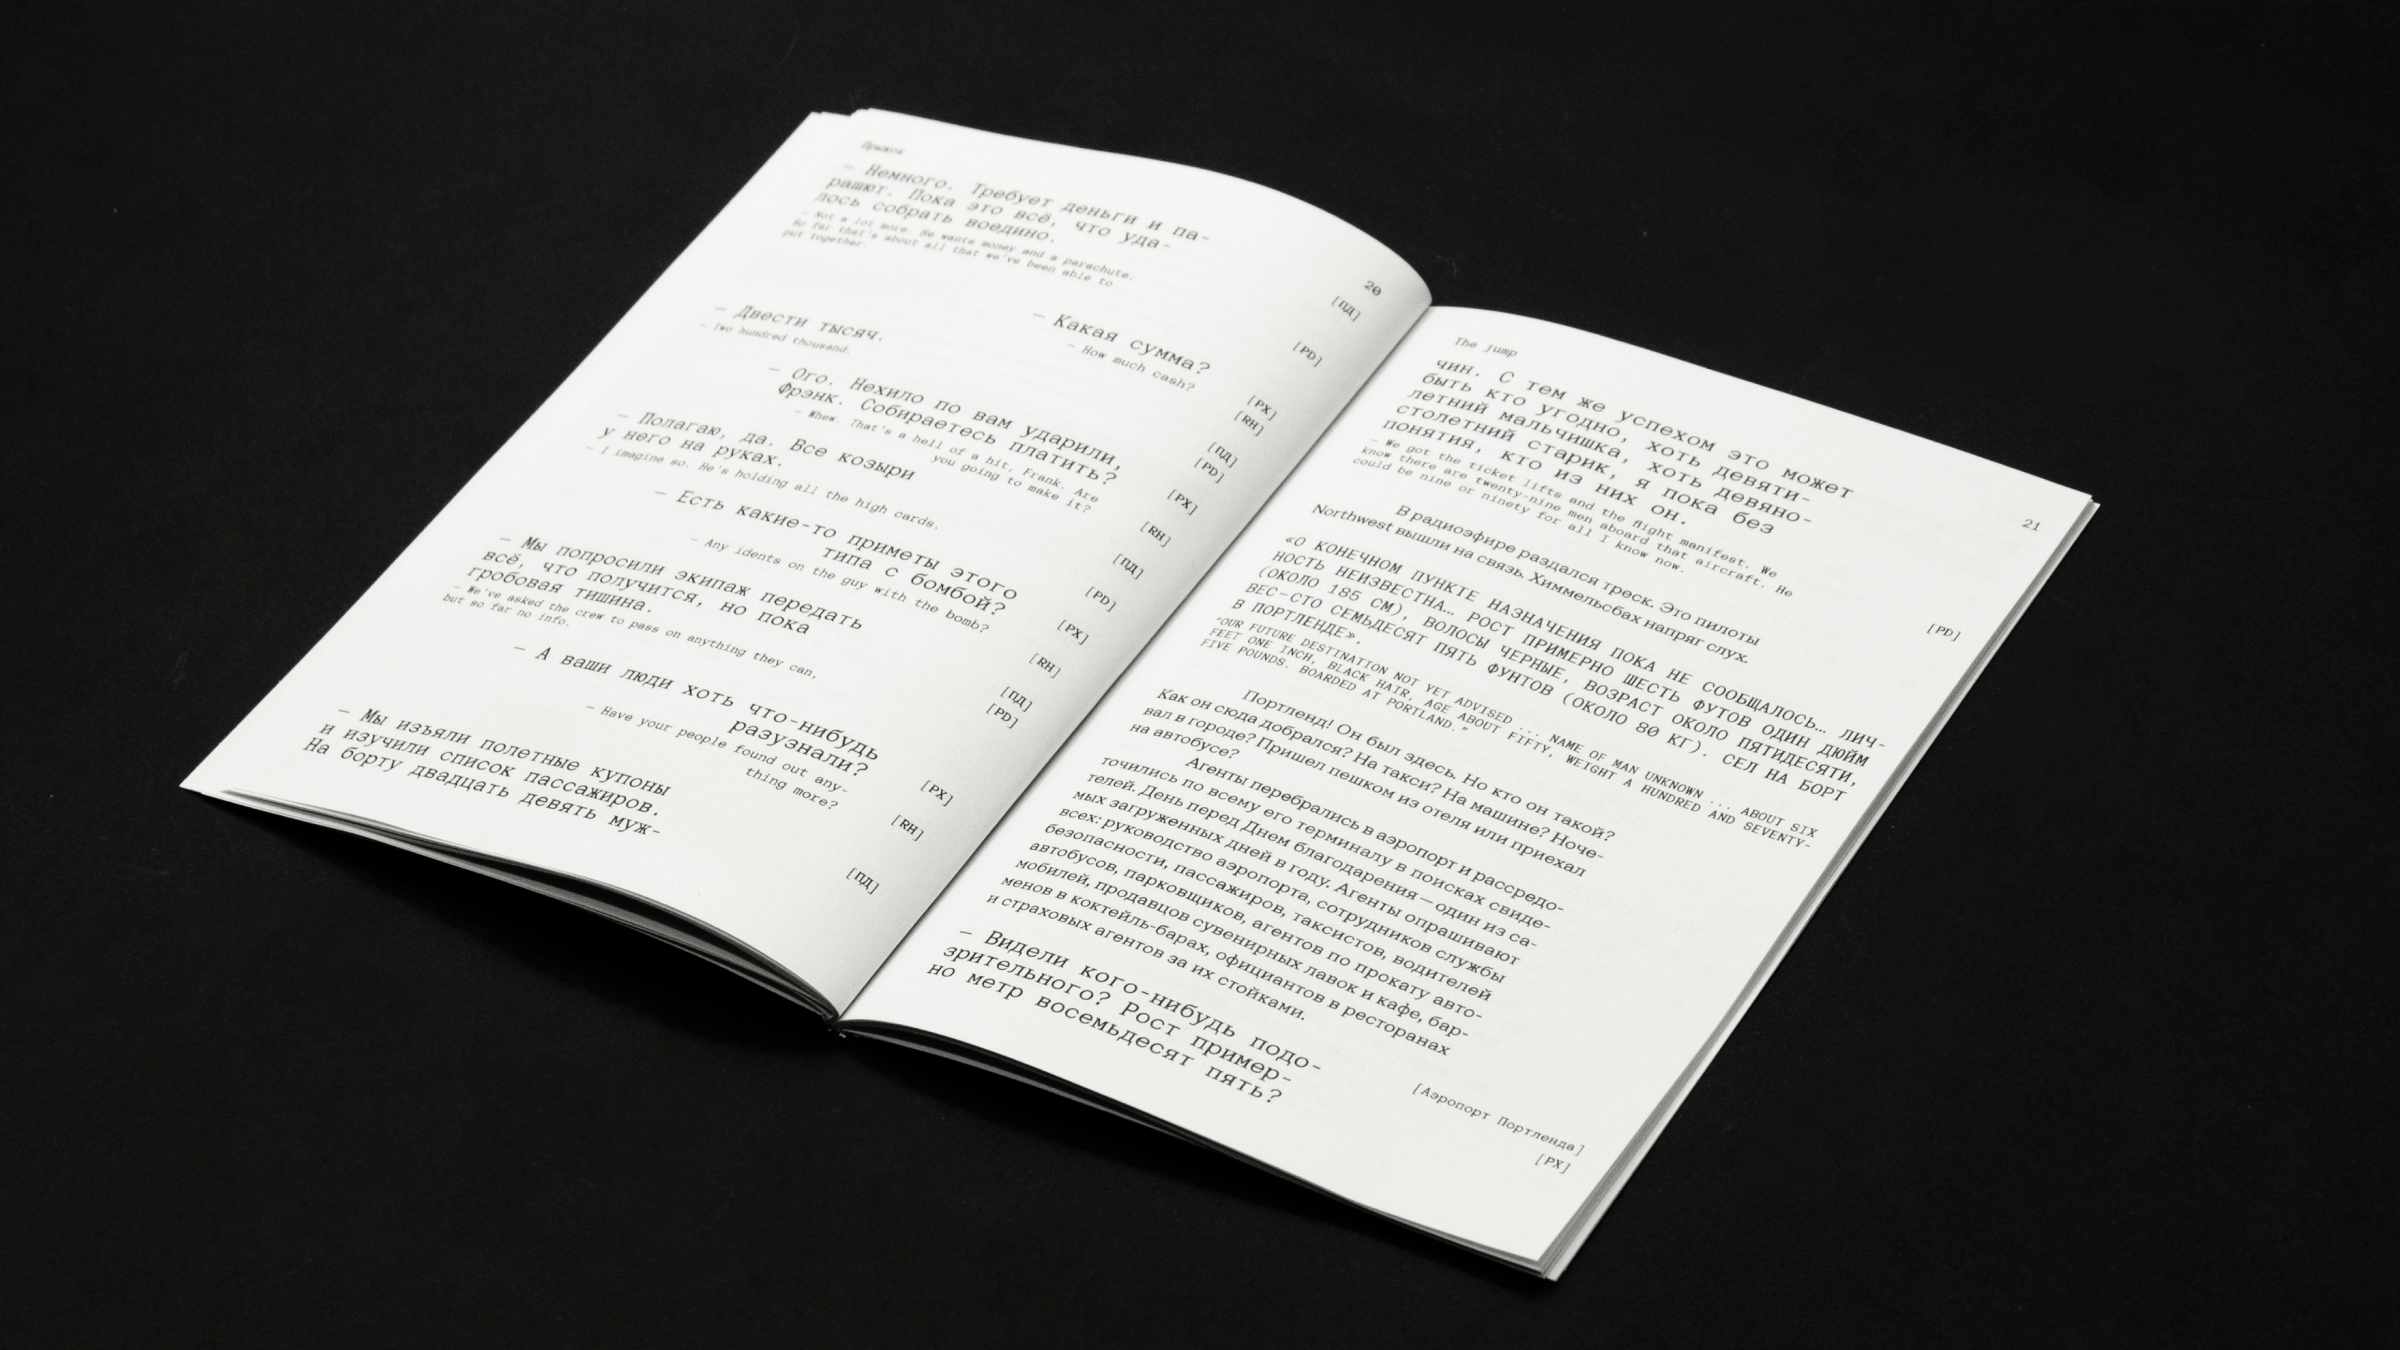 Прыжок
— Немного. Требует деньги и па-
рашют. Пока это всё, что уда-
лось собрать воедино.
— Not a lot more. He wants money and a parachute.
So far that's about all that we've been able to
put together.
20
[ПД]
[PD]
— Какая сумма?
— How much cash?
[РХ]
[RH]
— Двести тысяч.
— Two hundred thousand.
[ПД]
[PD]
— Ого. Нехило по вам ударили,
Фрэнк. Собираетесь платить?
— Whew. That's a hell of a hit, Frank. Are
you going to make it?
[РХ]
[RH]
— Полагаю, да. Все козыри
у него на руках.
— I imagine so. He's holding all the high cards.
[ПД]
[PD]
— Есть какие-то приметы этого
типа с бомбой?
— Any idents on the guy with the bomb?
[РХ]
[RH]
— Мы попросили экипаж передать
всё, что получится, но пока
гробовая тишина.
— We've asked the crew to pass on anything they can,
but so far no info.
[ПД]
[PD]
— А ваши люди хоть что-нибудь
разузнали?
— Have your people found out any-
thing more?
[РХ]
[RH]
— Мы изъяли полетные купоны
и изучили список пассажиров.
На борту двадцать девять муж-
[ПД]
The jump
чин. С тем же успехом это может
быть кто угодно, хоть девяти-
летний мальчишка, хоть девяно-
столетний старик, я пока без
понятия, кто из них он.
— We got the ticket lifts and the flight manifest. We
know there are twenty-nine men aboard that aircraft. He
could be nine or ninety for all I know now.
21
[PD]
В радиоэфире раздался треск. Это пилоты
Northwest вышли на связь. Химмельсбах напряг слух.
«О КОНЕЧНОМ ПУНКТЕ НАЗНАЧЕНИЯ ПОКА НЕ СООБЩАЛОСЬ… ЛИЧ-
НОСТЬ НЕИЗВЕСТНА… РОСТ ПРИМЕРНО ШЕСТЬ ФУТОВ ОДИН ДЮЙМ
(ОКОЛО 185 СМ), ВОЛОСЫ ЧЕРНЫЕ, ВОЗРАСТ ОКОЛО ПЯТИДЕСЯТИ,
ВЕС—СТО СЕМЬДЕСЯТ ПЯТЬ ФУНТОВ (ОКОЛО 80 КГ). СЕЛ НА БОРТ
В ПОРТЛЕНДЕ».
"OUR FUTURE DESTINATION NOT YET ADVISED ... NAME OF MAN UNKNOWN ... ABOUT SIX
FEET ONE INCH, BLACK HAIR, AGE ABOUT FIFTY, WEIGHT A HUNDRED AND SEVENTY-
FIVE POUNDS. BOARDED AT PORTLAND."
Портленд! Он был здесь. Но кто он такой?
Как он сюда добрался? На такси? На машине? Ноче-
вал в городе? Пришел пешком из отеля или приехал
на автобусе?
Агенты перебрались в аэропорт и рассредо-
точились по всему его терминалу в поисках свиде-
телей. День перед Днем благодарения — один из са-
мых загруженных дней в году. Агенты опрашивают
всех: руководство аэропорта, сотрудников службы
безопасности, пассажиров, таксистов, водителей
автобусов, парковщиков, агентов по прокату авто-
мобилей, продавцов сувенирных лавок и кафе, бар-
менов в коктейль-барах, официантов в ресторанах
и страховых агентов за их стойками.
— Видели кого-нибудь подо-
зрительного? Рост пример-
но метр восемьдесят пять?
[Аэропорт Портленда]
[РХ]